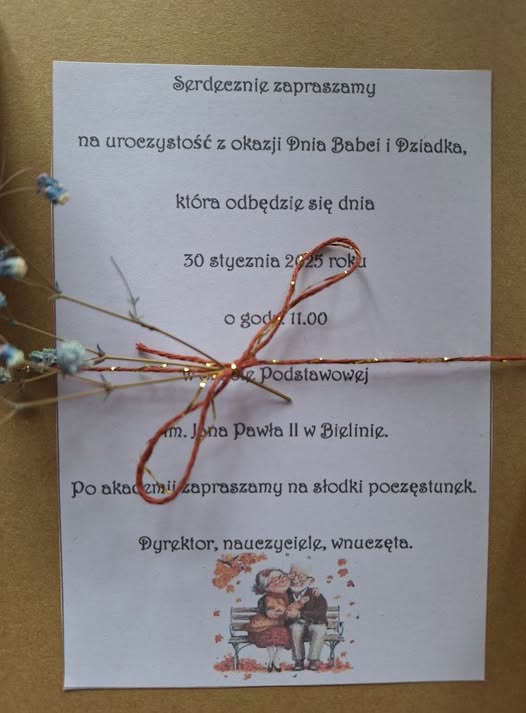 Serdecznie zapraszamy
na uroczystość z okazji Dnia Babci i Dziadka,
która odbędzie się dnia
30 stycznia 2025 roku
o godz. 11.00
w Szkole Podstawowej
im. Jana Pawła II w Bielinie.
Po akademii zapraszamy na słodki poczęstunek.
Dyrektor, nauczyciele, wnuczęta.